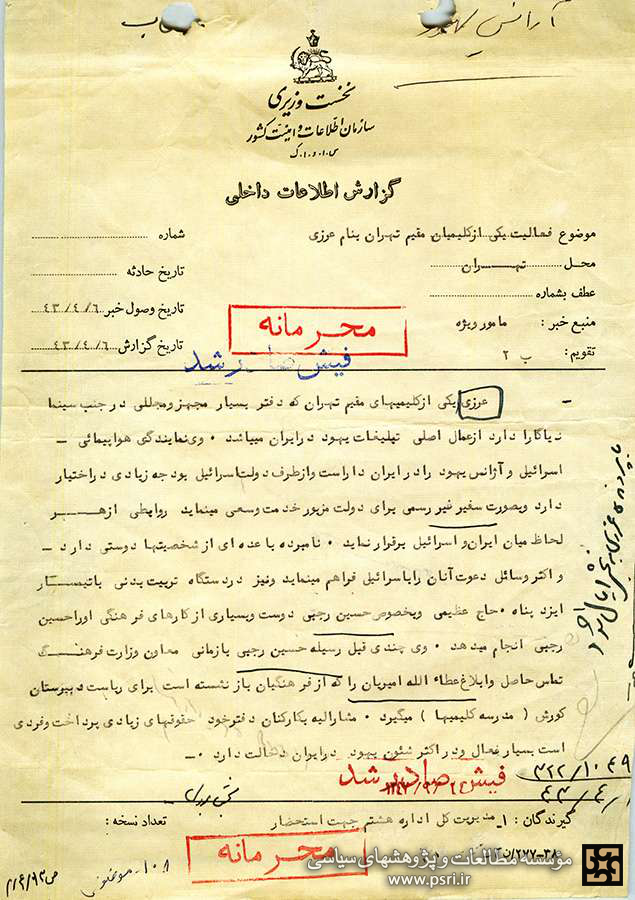 آژانس یهود
نخست وزیری
سازمان اطلاعات و امنیت کشور
س.ا.و.ا.ک
گزارش اطلاعات داخلی
موضوع فعالیت یکی از کلیمیان مقیم تهران بنام عرزی
شماره
محل تهران
تاریخ حادثه
عطف بشماره
تاریخ وصول خبر ۴۳/۴/۶
منبع خبر : مامور ویژه
تاریخ گزارش ۴۳/۴/۶
تقویم : ب ۲
محرمانه
فیش صادر شد
- عرزی یکی از کلیمیهای مقیم تهران که دفتر بسیار مجهز و مجللی در جنب سینما
نیاگارا دارد از عمال اصلی تبلیغات یهود در ایران میباشد ۰ وی نمایندگی هواپیمائی -
اسرائیل و آژانس یهود را در ایران داراست و از طرف دولت اسرائیل بودجه زیادی در اختیار
دارد و بصورت سفیر غیر رسمی برای دولت مزبور خدمت وسعی مینماید روابطی از هر
لحاظ میان ایران و اسرائیل برقرار نماید ۰ نامبرده با عده ای از شخصیتها دوستی دارد -
و اکثر وسائل دعوت آنان را باسرائیل فراهم مینماید و نیز در دستگاه تربیت بدنی با تیمسار
ایزد پناه ۰ حاج عظیمی و بخصوص حسین رجبی دوست و بسیاری از کارهای فرهنگی او را حسین
رجبی انجام میدهد ۰ وی چندی قبل وسیله حسین رجبی بازمانی معاون وزارت فرهنگ
تماس حاصل و ابلاغ عطاء الله امیریان را که از فرهنگیان بازنشسته است برای ریاست دبیرستان
کورش ( مدرسه کلیمیها ) میگیرد ۰ مشارالیه بکارکنان دفتر خود حقوقهای زیادی پرداخت و فردی
است بسیار فعال و در اکثر شئون یهود در ایران دخالت دارد ۰-
فیش صادر شد
۳۲۲/۱۰۴۹
گیرندگان : ۱- مدیریت کل اداره هشتم جهت استحضار
تعداد نسخه :
محرمانه
مؤسسه مطالعات و پژوهشهای سیاسی
www.psri.ir